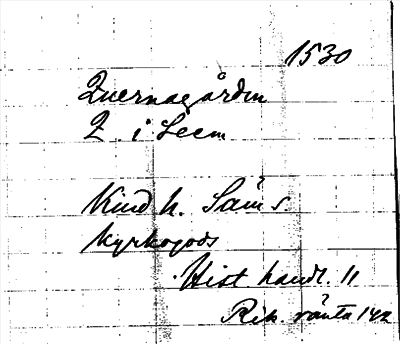 1530
Quernagården
Q. i Leem
Kind h. Säm s.
Kyrkogods
Hist handl. 11
Rih. ränta 142